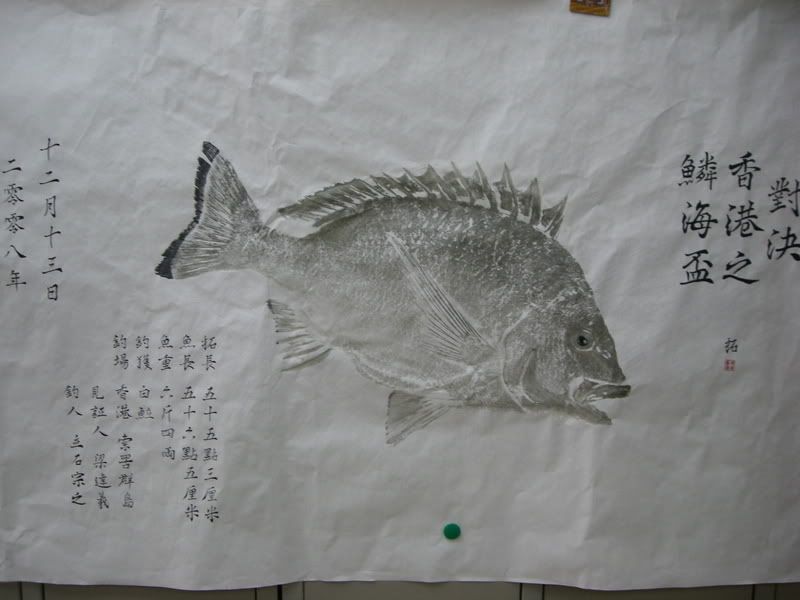 對決
香港之
鱗海盃
拓
拓長 五十五點三厘米
魚長 五十六點五厘米
魚重 六斤四兩
釣獲 白䱽
釣場 香港 索罟群島
見証人 梁達羲
釣人 立石宗之
十二月十三日
二零零八年